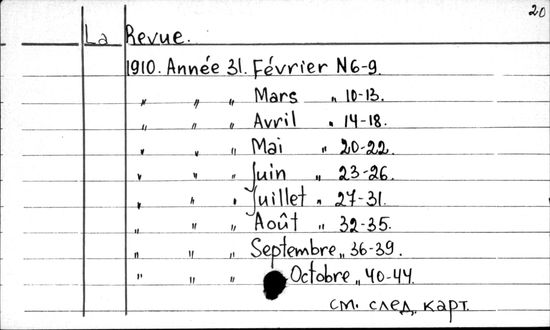 20
La Revue.
1910. Année 31. Février N 6-9.
" " " Mars " 10-13.
" " " Avril " 14-18.
" " " Mai " 20-22.
" " " Juin " 23-26.
" " " Juillet " 27-31.
" " " Août " 32-35.
" " " Septembre " 36-39.
" " " Octobre " 40-44.
см. след. карт.